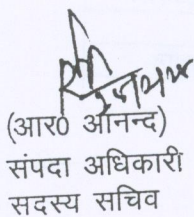 (आर0 आनन्द)
संपदा अधिकारी
सदस्य सचिव